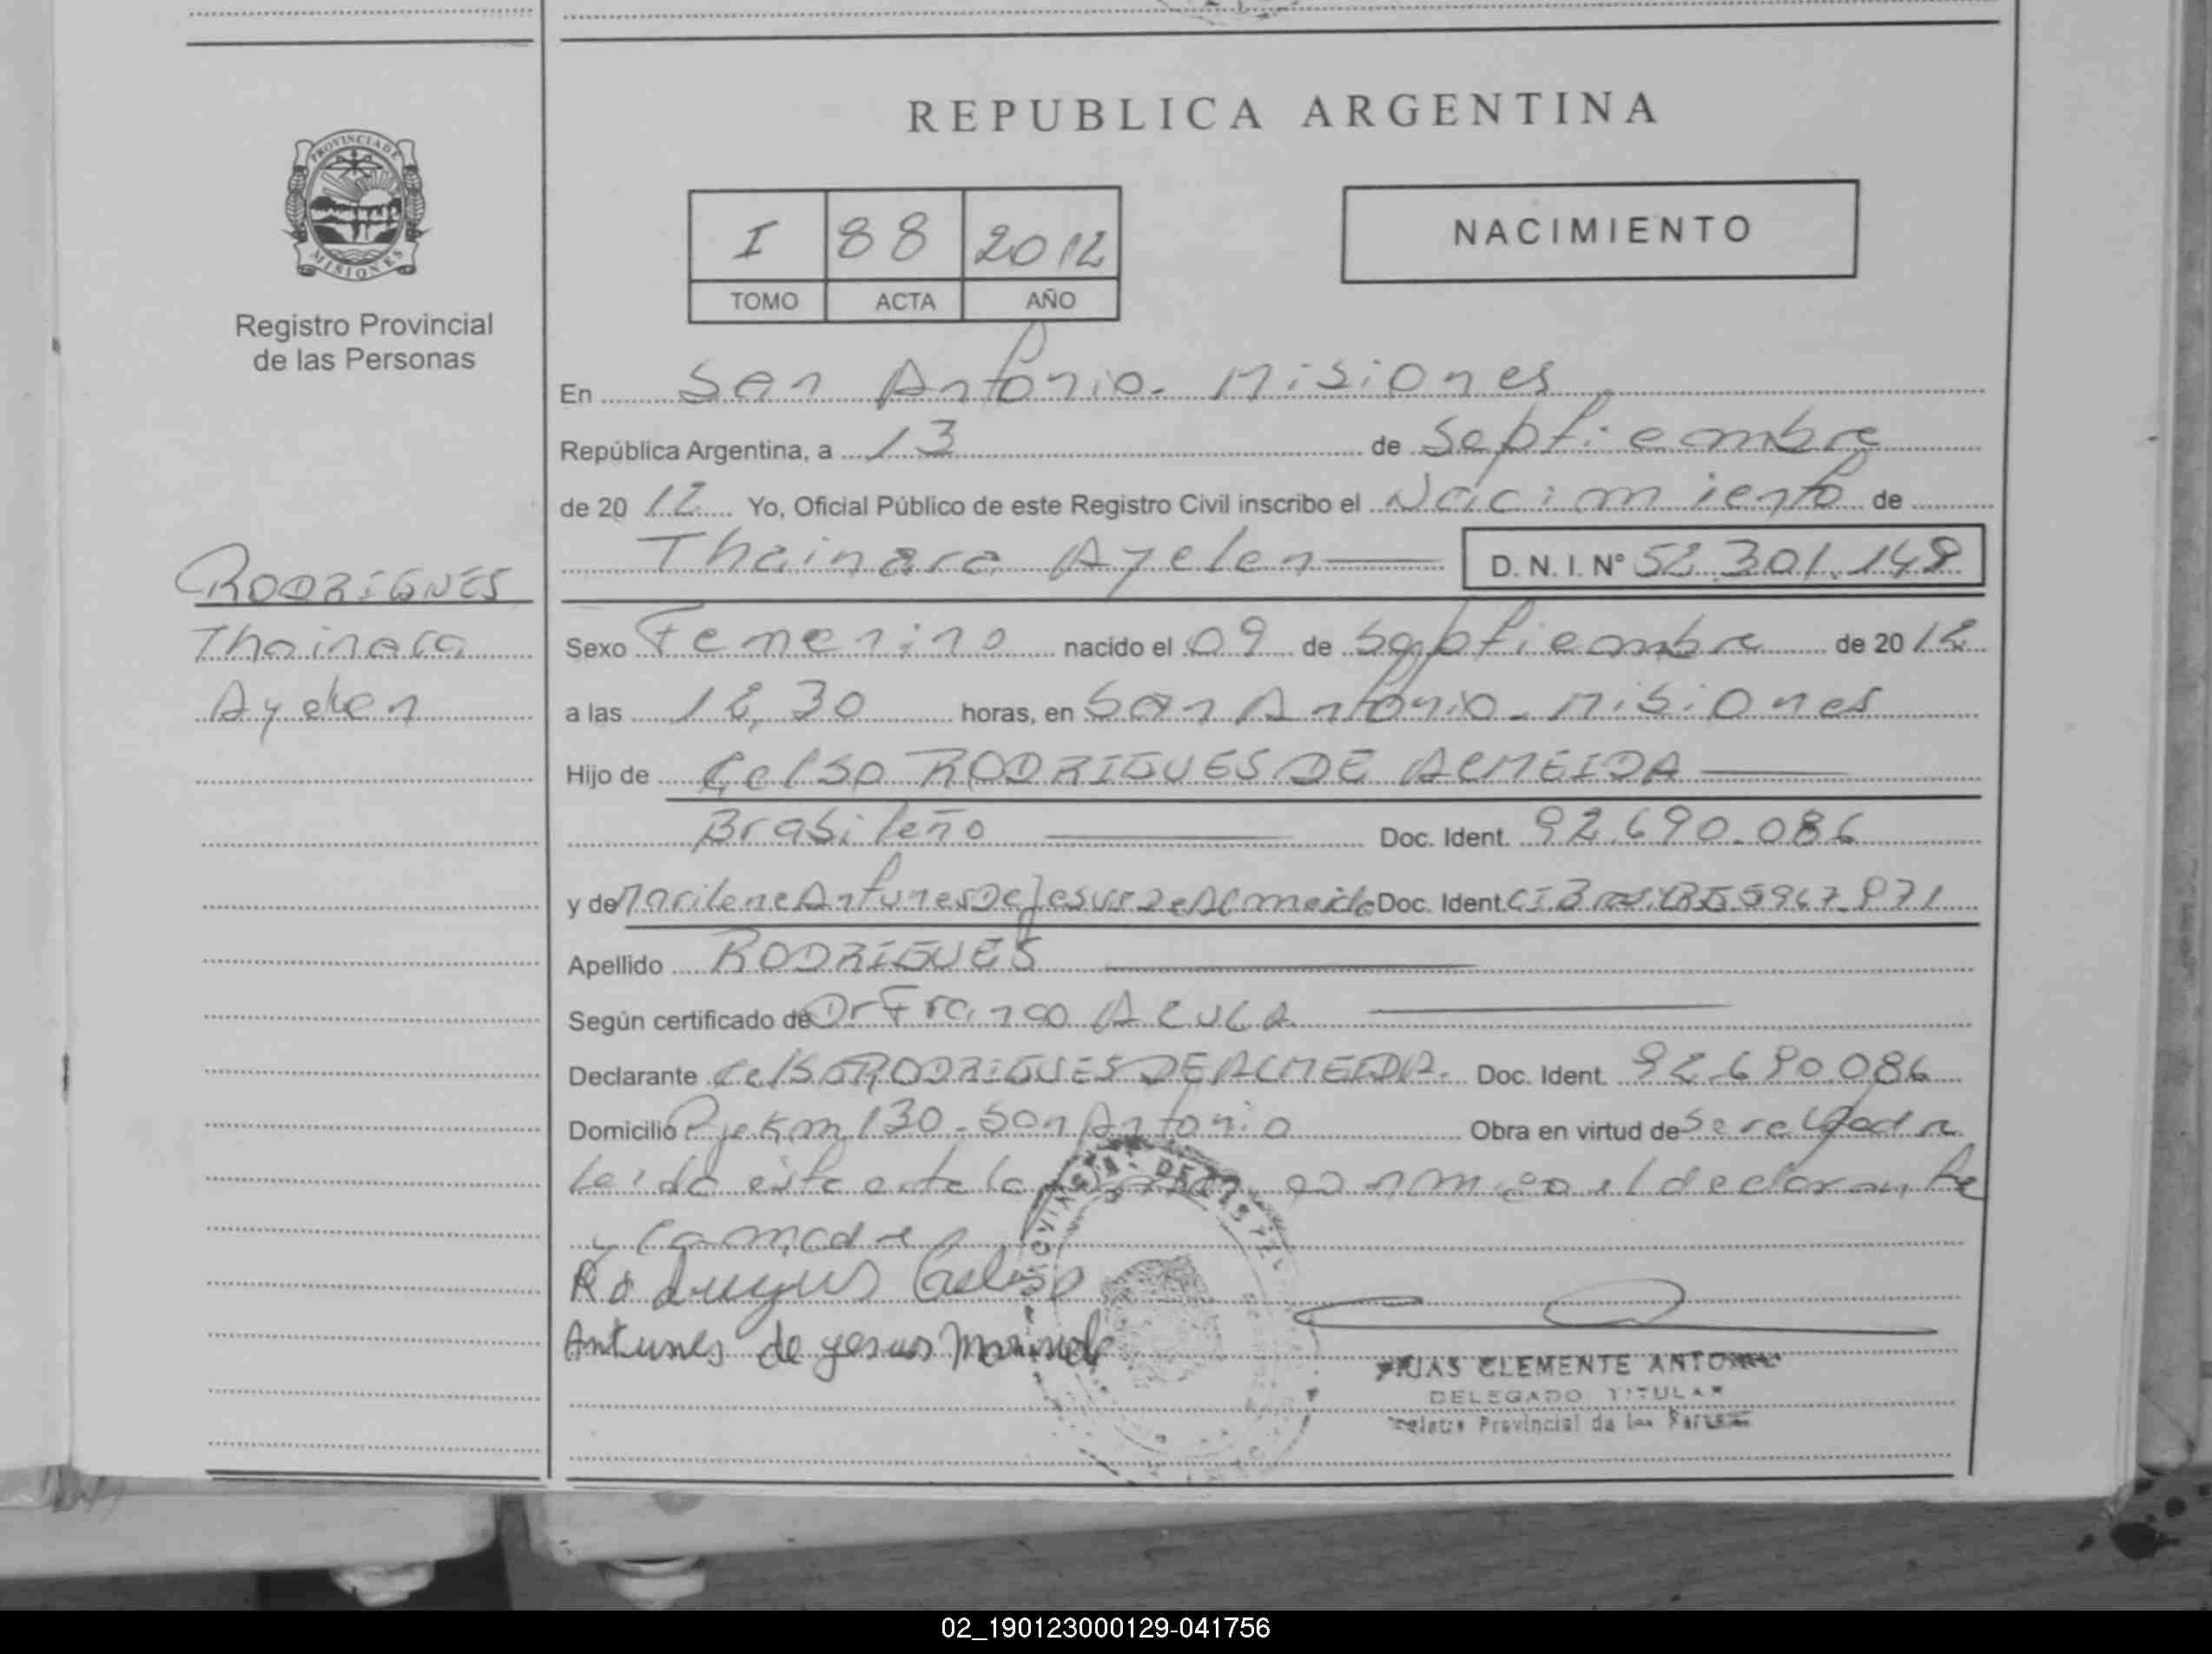 REPUBLICA ARGENTINA
PROVINCIA DE MISIONES
Registro Provincial
de las Personas
I 88 2012
TOMO ACTA AÑO
NACIMIENTO
En San Antonio - Misiones
República Argentina, a 13 de Septiembre
de 20 12 Yo, Oficial Público de este Registro Civil inscribo el Nacimiento de
Thainara Ayelen D. N. I. Nº 52.301.148
RODRIGUES
Thainara
Ayelen
Sexo Femenino nacido el 09 de Septiembre de 20 12
a las 12,30 horas, en San Antonio - Misiones
Hijo de Celso RODRIGUES DE ALMEIDA
Brasileño Doc. Ident. 92.690.086
y de Marilene Antunes De Jesus De Almeida Doc. Ident. CI
Apellido RODRIGUES
Según certificado de Dr Franco
Declarante Celso RODRIGUES DE ALMEIDA. Doc. Ident. 92.690.086
Domicilio Pje Km 130 - San Antonio Obra en virtud de
Leida este acta la conmigo el declarante
y la madre
Rodrigues Celso
Antunes de yesus
CLEMENTE ANTONIO
DELEGADO TITULAR
Provincial de las
02_190123000129-041756